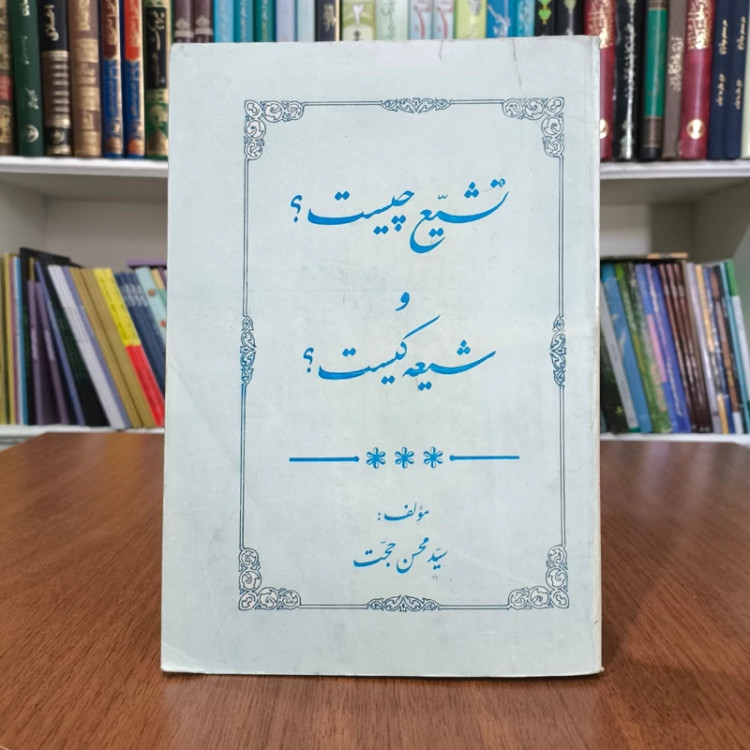 تشیّع چیست؟
و
شیعه کیست؟
مؤلف:
سیّد محسن حجّت